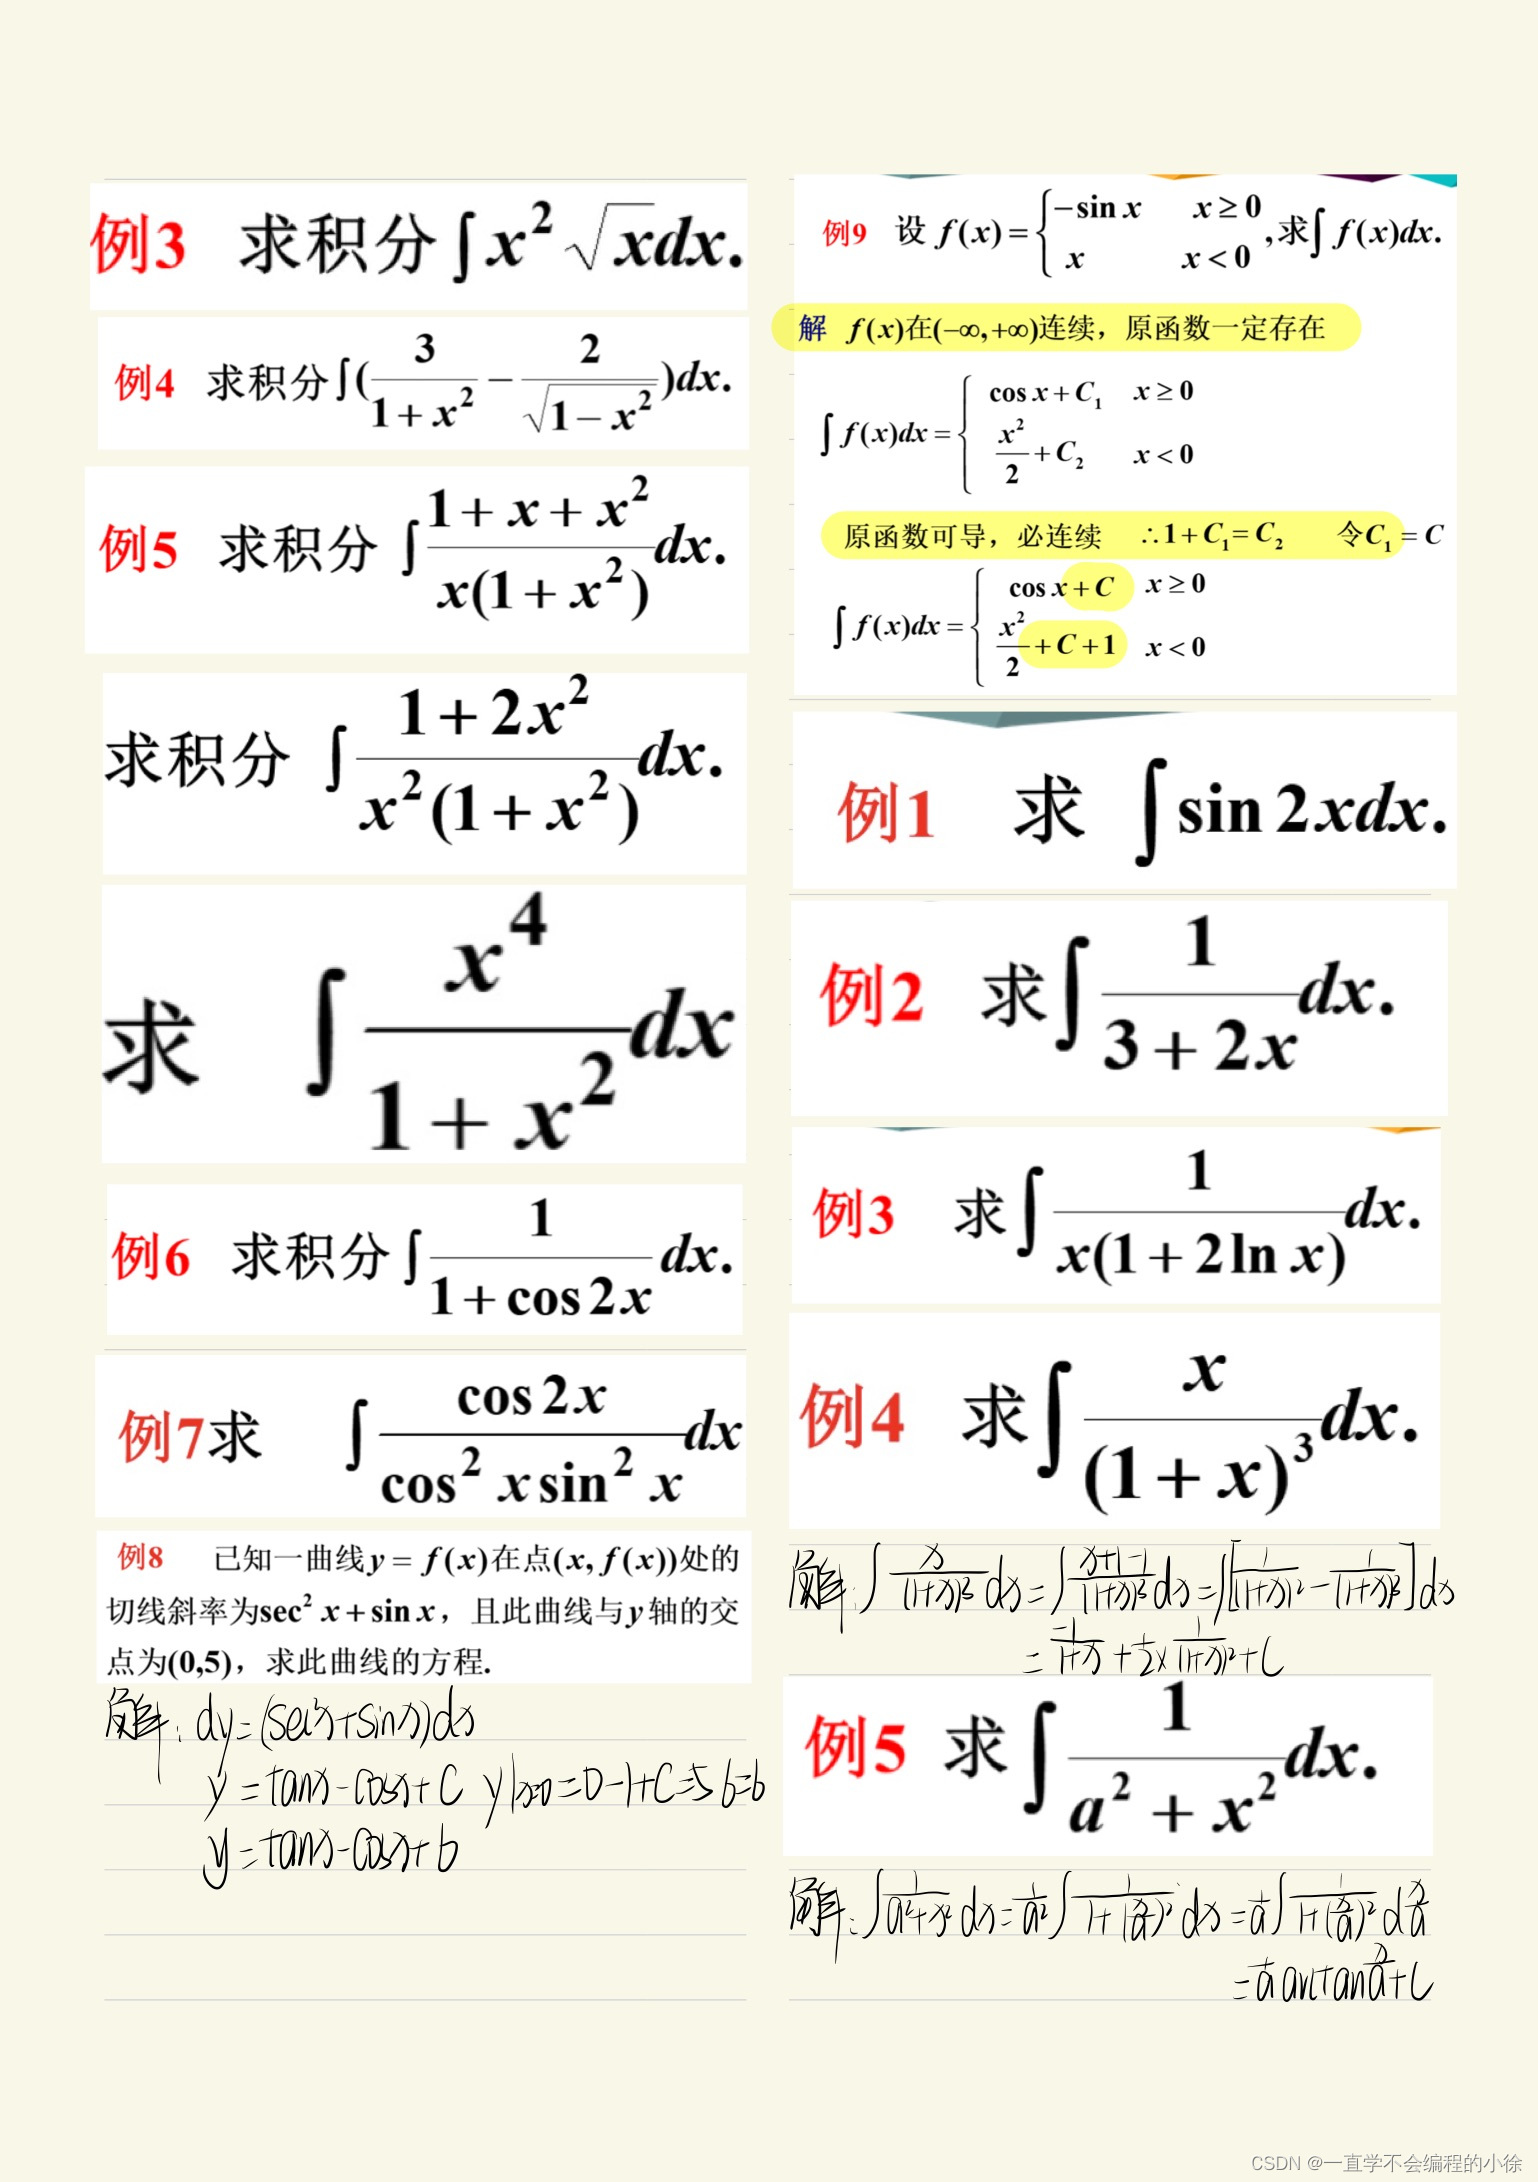 例3 求积分∫x²√x dx.
例4 求积分∫(3/(1+x²) − 2/√(1−x²))dx.
例5 求积分 ∫(1+x+x²)/(x(1+x²)) dx.
求积分 ∫(1+2x²)/(x²(1+x²)) dx.
求 ∫x⁴/(1+x²) dx
例6 求积分∫1/(1+cos2x) dx.
例7求 ∫cos2x/(cos²x sin²x) dx
例8 已知一曲线y = f(x)在点(x, f(x))处的
切线斜率为sec² x + sin x，且此曲线与y轴的交
点为(0,5)，求此曲线的方程.
解: dy=(sec²x+sinx)dx
y=tanx-cosx+C y|x=0=0-1+C=5 6=6
y=tanx-cosx+6
例9 设 f(x) = { −sin x x≥0
x x<0 ,求∫f(x)dx.
解 f(x)在(−∞,+∞)连续，原函数一定存在
∫f(x)dx = { cos x + C₁ x≥0
x²/2 + C₂ x<0
原函数可导，必连续 ∴1+C₁=C₂ 令C₁=C
∫f(x)dx = { cos x + C x≥0
x²/2 + C + 1 x<0
例1 求 ∫sin 2xdx.
例2 求∫1/(3+2x) dx.
例3 求∫1/(x(1+2ln x)) dx.
例4 求∫x/(1+x)³ dx.
解: ∫x/(1+x)³ dx=∫(x+1-1)/(1+x)³ dx=∫[1/(1+x)²-1/(1+x)³]dx
= -1/(1+x)+1/2×1/(1+x)²+C
例5 求∫1/(a²+x²) dx.
解: ∫1/(a²+x²) dx=1/a²∫1/(1+(x/a)²) dx=1/a∫1/(1+(x/a)²) d x/a
=1/a arctan x/a+C
CSDN @一直学不会编程的小徐